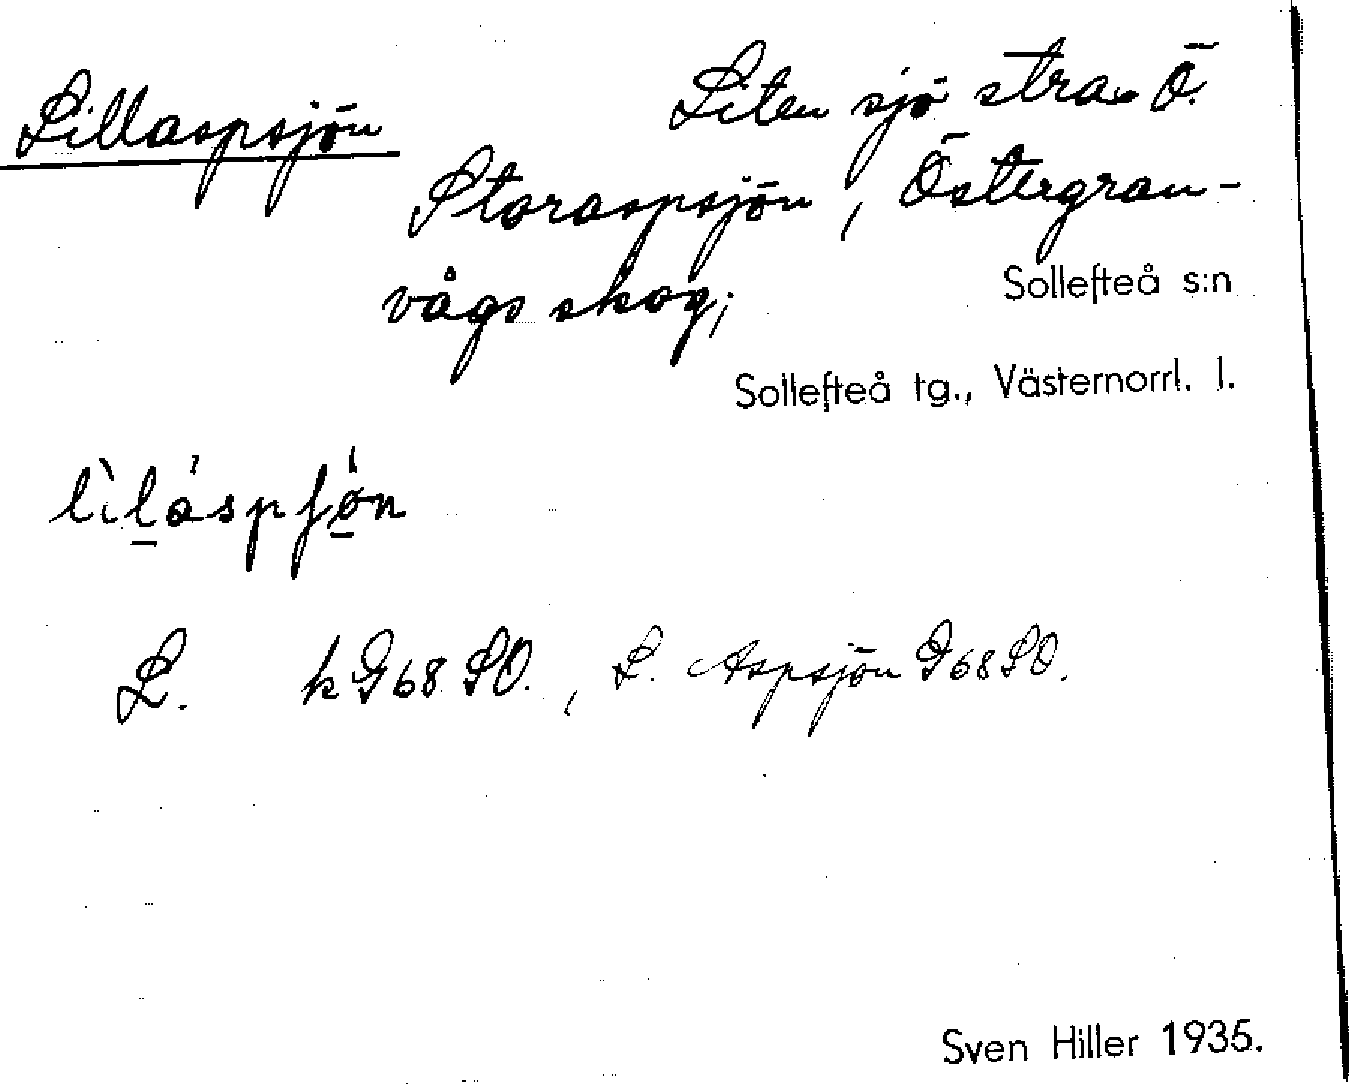 Lillaspsjön
Liten sjö strax Ö.
Storaspsjön, Östergran-
vågs skog;
Sollefteå s:n
Sollefteå tg., Västernorrl. l.
L. k G68 SO., L. Aspsjön G68 SO.
Sven Hiller 1935.